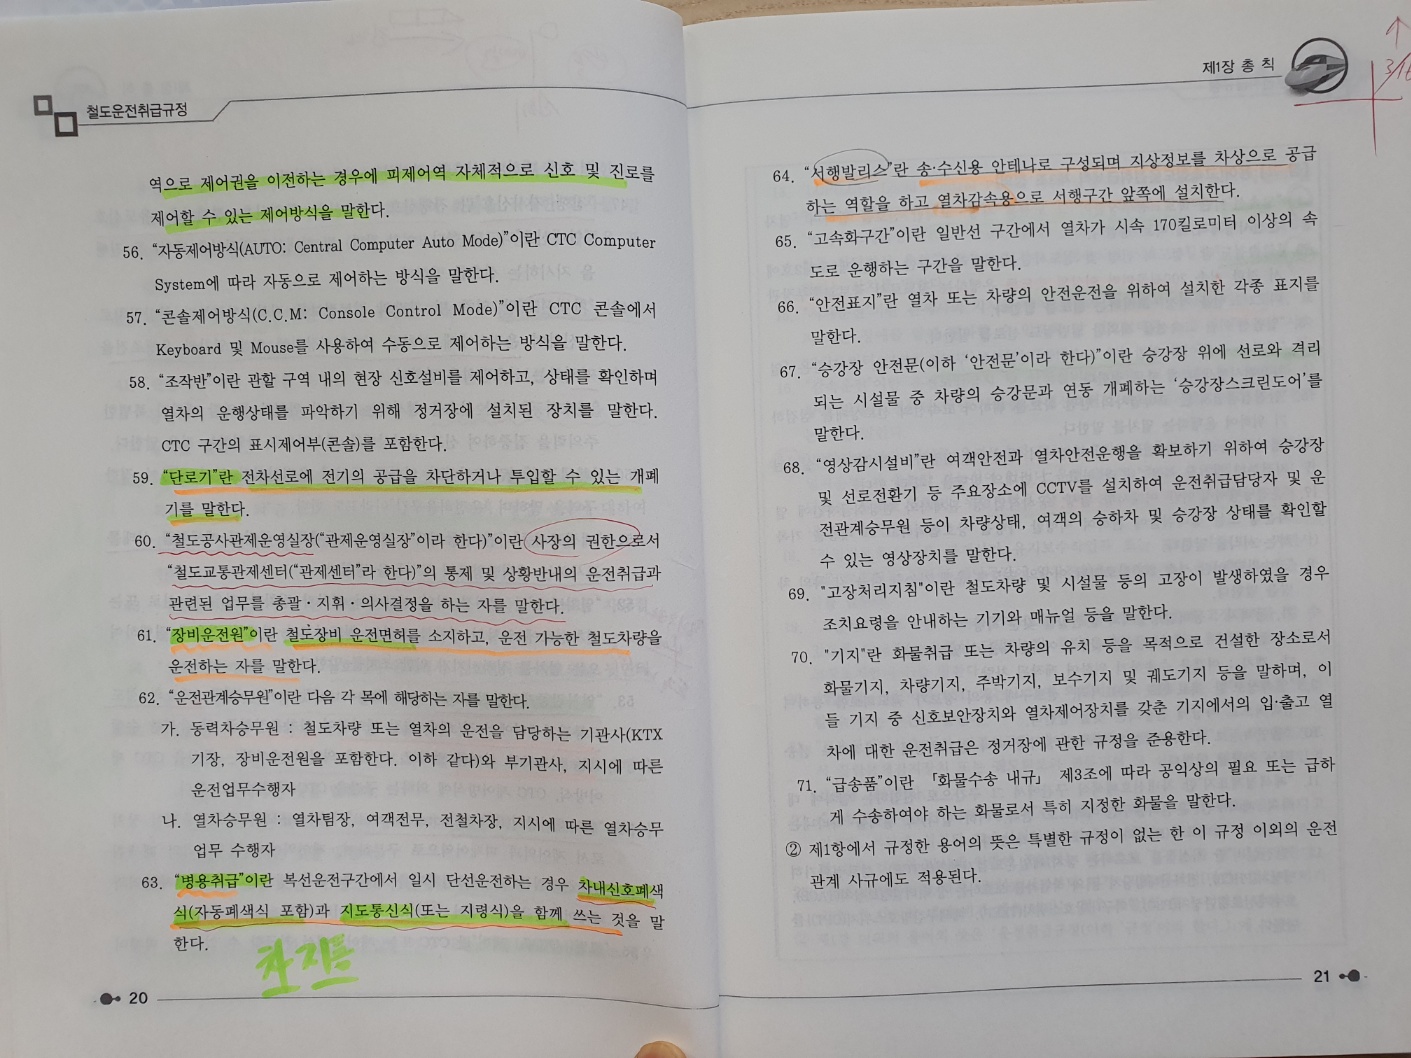 철도운전취급규정
역으로 제어권을 이전하는 경우에 피제어역 자체적으로 신호 및 진로를
제어할 수 있는 제어방식을 말한다.
56. “자동제어방식(AUTO: Central Computer Auto Mode)”이란 CTC Computer
System에 따라 자동으로 제어하는 방식을 말한다.
57. “콘솔제어방식(C.C.M: Console Control Mode)”이란 CTC 콘솔에서
Keyboard 및 Mouse를 사용하여 수동으로 제어하는 방식을 말한다.
58. “조작반”이란 관할 구역 내의 현장 신호설비를 제어하고, 상태를 확인하며
열차의 운행상태를 파악하기 위해 정거장에 설치된 장치를 말한다.
CTC 구간의 표시제어부(콘솔)를 포함한다.
59. “단로기”란 전차선로에 전기의 공급을 차단하거나 투입할 수 있는 개폐
기를 말한다.
60. “철도공사관제운영실장(“관제운영실장”이라 한다)”이란 사장의 권한으로서
“철도교통관제센터(“관제센터”라 한다)”의 통제 및 상황반내의 운전취급과
관련된 업무를 총괄·지휘·의사결정을 하는 자를 말한다.
61. “장비운전원”이란 철도장비 운전면허를 소지하고, 운전 가능한 철도차량을
운전하는 자를 말한다.
62. “운전관계승무원”이란 다음 각 목에 해당하는 자를 말한다.
가. 동력차승무원 : 철도차량 또는 열차의 운전을 담당하는 기관사(KTX
기장, 장비운전원을 포함한다. 이하 같다)와 부기관사, 지시에 따른
운전업무수행자
나. 열차승무원 : 열차팀장, 여객전무, 전철차장, 지시에 따른 열차승무
업무 수행자
63. “병용취급”이란 복선운전구간에서 일시 단선운전하는 경우 차내신호폐색
식(자동폐색식 포함)과 지도통신식(또는 지령식)을 함께 쓰는 것을 말
한다.
20
제1장 총 칙
64. “서행발리스”란 송·수신용 안테나로 구성되며 지상정보를 차상으로 공급
하는 역할을 하고 열차감속용으로 서행구간 앞쪽에 설치한다.
65. “고속화구간”이란 일반선 구간에서 열차가 시속 170킬로미터 이상의 속
도로 운행하는 구간을 말한다.
66. “안전표지”란 열차 또는 차량의 안전운전을 위하여 설치한 각종 표지를
말한다.
67. “승강장 안전문(이하 ‘안전문’이라 한다)”이란 승강장 위에 선로와 격리
되는 시설물 중 차량의 승강문과 연동 개폐하는 ‘승강장스크린도어’를
말한다.
68. “영상감시설비”란 여객안전과 열차안전운행을 확보하기 위하여 승강장
및 선로전환기 등 주요장소에 CCTV를 설치하여 운전취급담당자 및 운
전관계승무원 등이 차량상태, 여객의 승하차 및 승강장 상태를 확인할
수 있는 영상장치를 말한다.
69. “고장처리지침”이란 철도차량 및 시설물 등의 고장이 발생하였을 경우
조치요령을 안내하는 기기와 매뉴얼 등을 말한다.
70. "기지"란 화물취급 또는 차량의 유치 등을 목적으로 건설한 장소로서
화물기지, 차량기지, 주박기지, 보수기지 및 궤도기지 등을 말하며, 이
들 기지 중 신호보안장치와 열차제어장치를 갖춘 기지에서의 입·출고 열
차에 대한 운전취급은 정거장에 관한 규정을 준용한다.
71. “급송품”이란 「화물수송 내규」 제3조에 따라 공익상의 필요 또는 급하
게 수송하여야 하는 화물로서 특히 지정한 화물을 말한다.
② 제1항에서 규정한 용어의 뜻은 특별한 규정이 없는 한 이 규정 이외의 운전
관계 사규에도 적용된다.
21